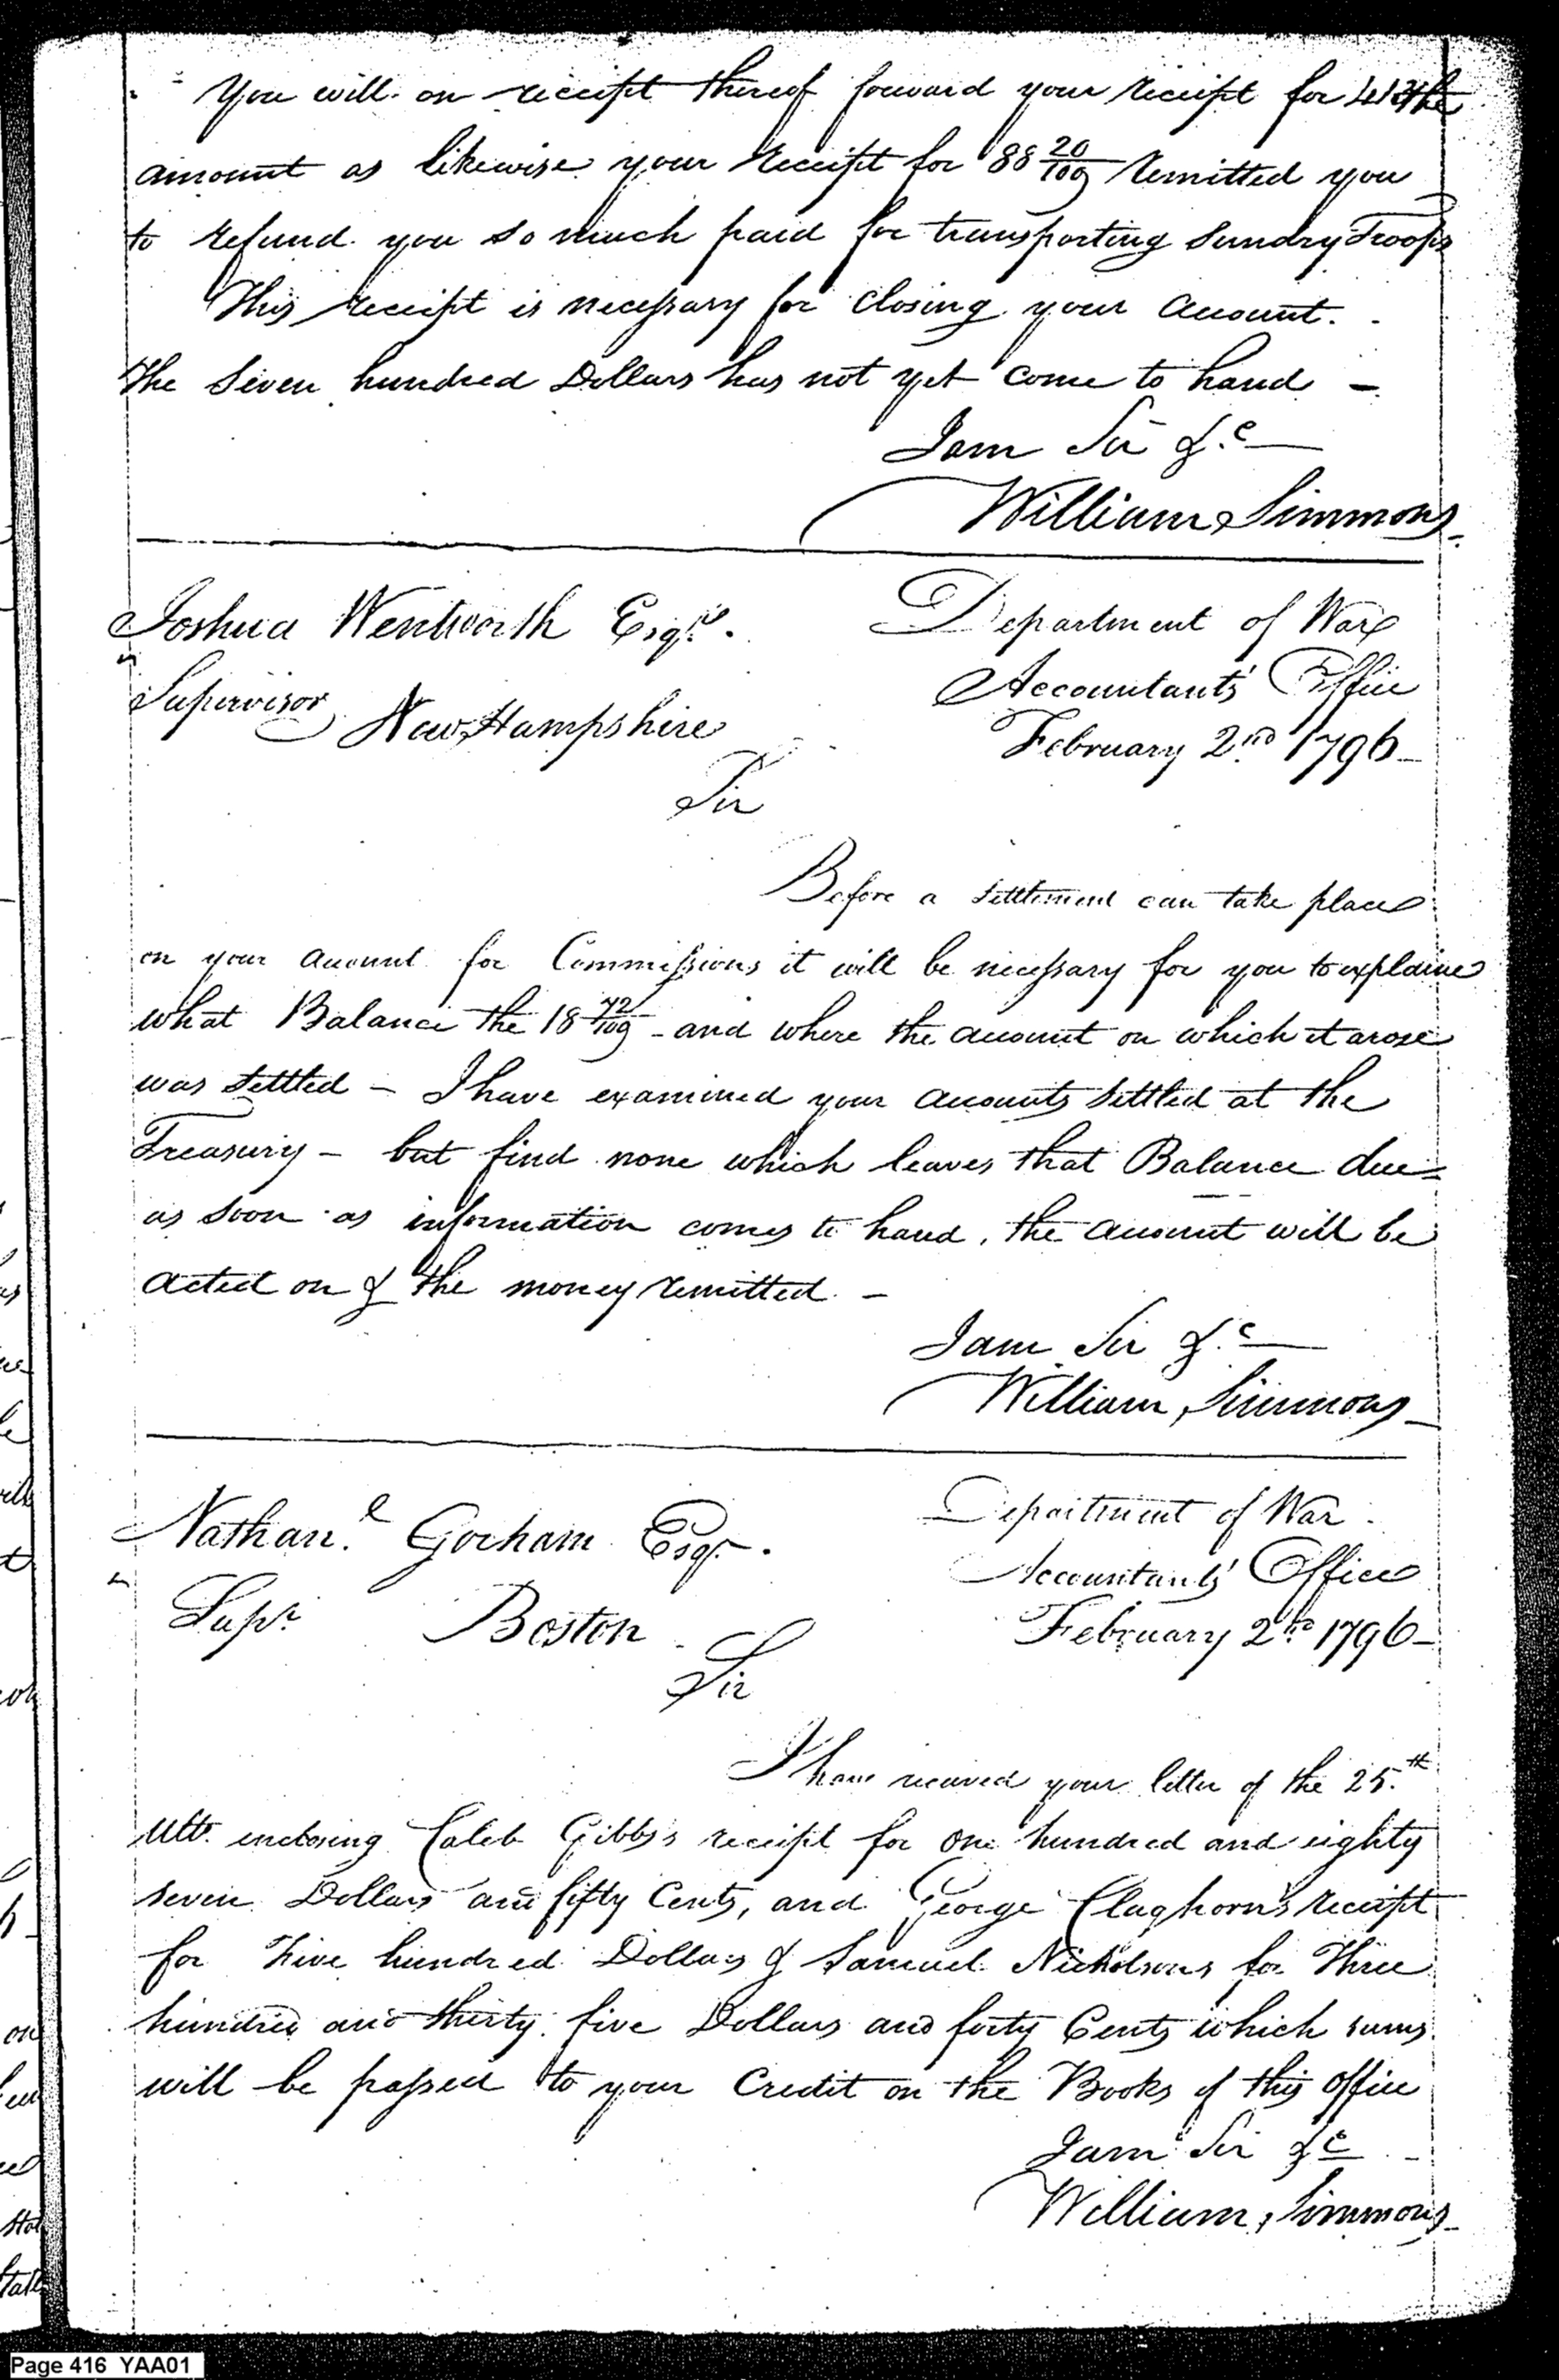 You will on receipt thereof forward your receipt for the
amount as likewise your receipt for 88 20/100 remitted you
to refund you so much paid for transporting sundry Troops
This receipt is necessary for closing your account.
The Seven hundred Dollars has not yet come to hand –
I am Sir &c
William Simmons
Joshua Wentworth Esqr.
Department of War
Accountants' Office
Supervisor New Hampshire
February 2nd 1796
Sir
Before a settlement can take place
on your account for Commissions it will be necessary for you to explaine
what Balance the 18 72/100 – and where the account on which it arose
was settled – I have examined your accounts settled at the
Treasury – but find none which leaves that Balance due –
as soon as information comes to hand, the account will be
acted on & the money remitted. –
I am Sir &c
William Simmons
Nathanl Gorham Esqr.
Department of War
Accountants' Office
Supr. Boston
February 2nd 1796
Sir
I have received your letter of the 25.th
Ulto. enclosing Caleb Gibbs's receipt for one hundred and eighty
seven Dollars and fifty Cents, and George Claghorn's receipt
for Five hundred Dollars & Samuel Nicholsons for Three
hundred and thirty five Dollars and forty Cents which sums
will be passed to your Credit on the Books of this office
I am Sir &c
William Simmons
Page 416 YAA01